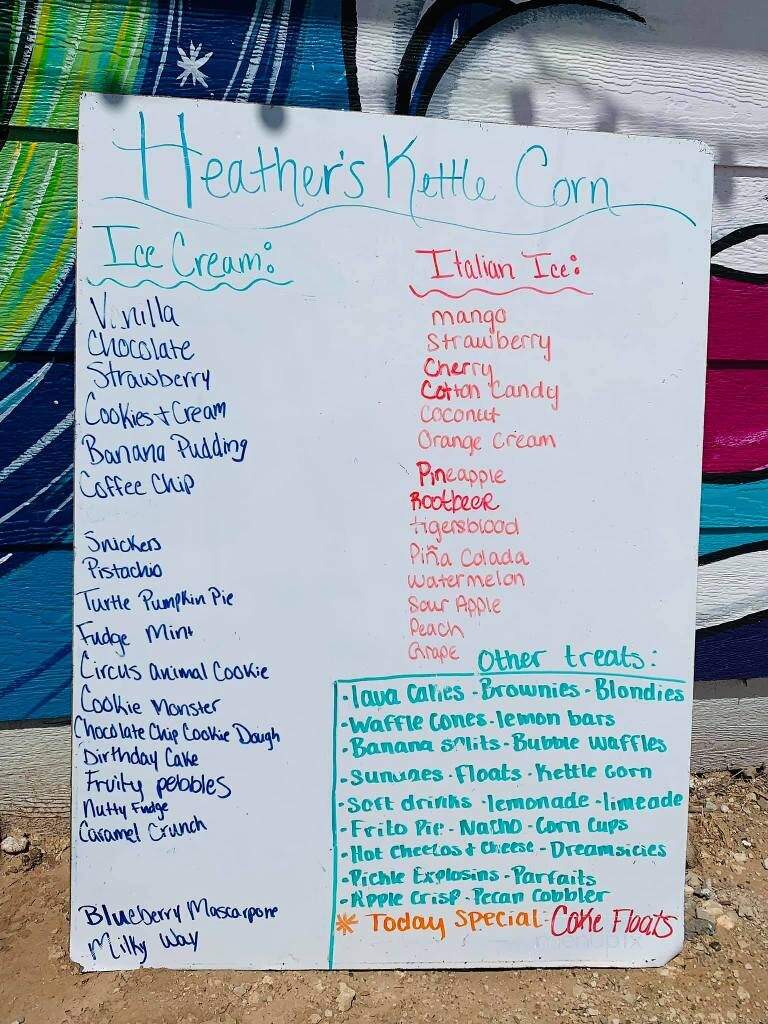 Heather's Kettle Corn
Ice Cream:
Vanilla
Chocolate
Strawberry
Cookies + Cream
Banana Pudding
Coffee Chip
Snickers
Pistachio
Turtle Pumpkin Pie
Fudge Mint
Circus Animal Cookie
Cookie Monster
Chocolate Chip Cookie Dough
Birthday Cake
Fruity pebbles
Nutty Fudge
Caramel Crunch
Blueberry Mascarpone
Milky Way
Italian Ice:
mango
Strawberry
Cherry
Cotton Candy
Coconut
Orange Cream
Pineapple
Rootbeer
tigersblood
Piña Colada
Watermelon
Sour Apple
Peach
Grape
Other treats:
·lava cakes ·Brownies ·Blondies
·Waffle Cones ·lemon bars
·Banana splits ·Bubble Waffles
·Sundaes ·Floats ·Kettle Corn
·Soft drinks ·lemonade ·limeade
·Frito Pie ·Nacho ·Corn Cups
·Hot Cheetos & Cheese ·Dreamsicies
·Pickle Explosins ·Parfaits
·Apple Crisp ·Pecan Cobbler
* Today Special: Coke Floats